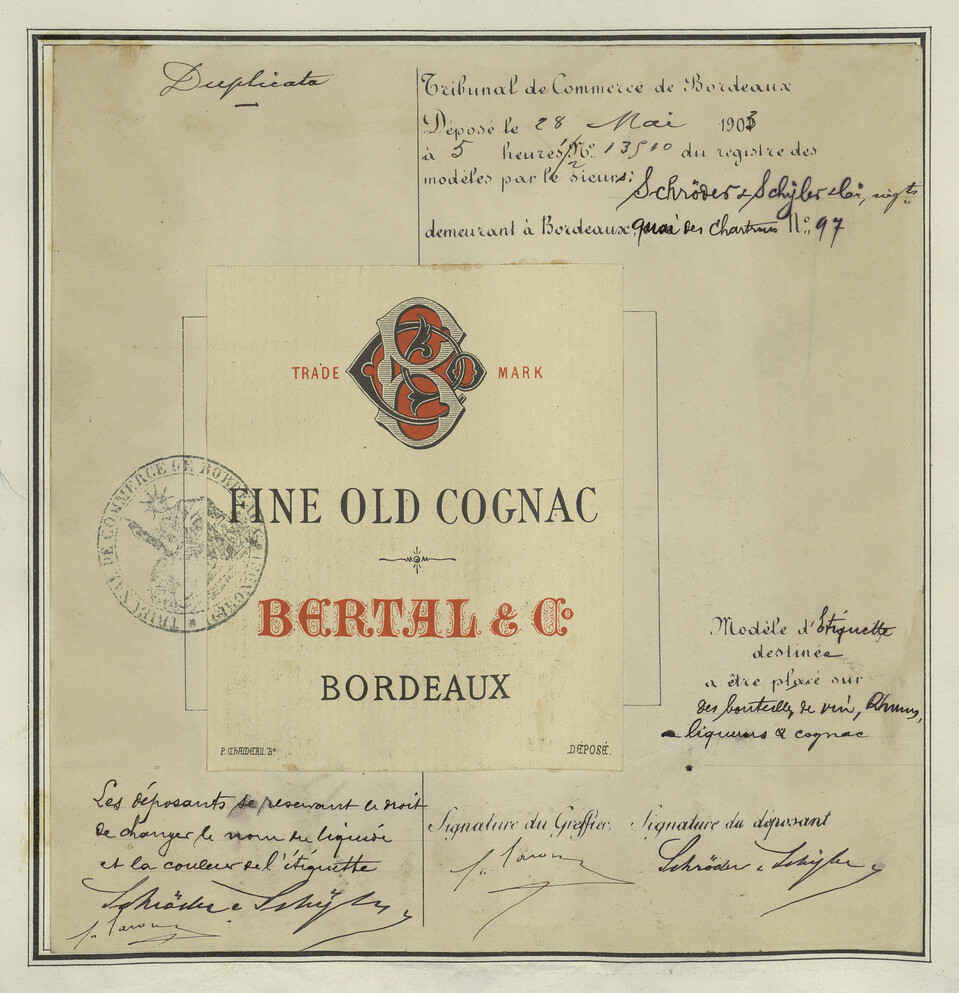 Duplicata
Tribunal de Commerce de Bordeaux
Déposé le 28 Mai 1903
à 5 heures No. 13510 du registre des
modèles par le sieurs: Schröder & Schÿler & Cie, négts
demeurant à Bordeaux, quai des Chartrons No. 97
TRADE MARK
FINE OLD COGNAC
BERTAL & Co
BORDEAUX
DÉPOSÉ.
TRIBUNAL DE COMMERCE DE BORDEAUX
Modèle d'Étiquette
destinée
a être placé sur
des bouteilles de vin, Rhums,
liqueurs & cognac
Les déposants se réservant le droit
de changer le nom du liquide
et la couleur de l'étiquette
Schröder & Schÿler
Signature du Greffier. Signature du déposant
Schröder & Schÿler